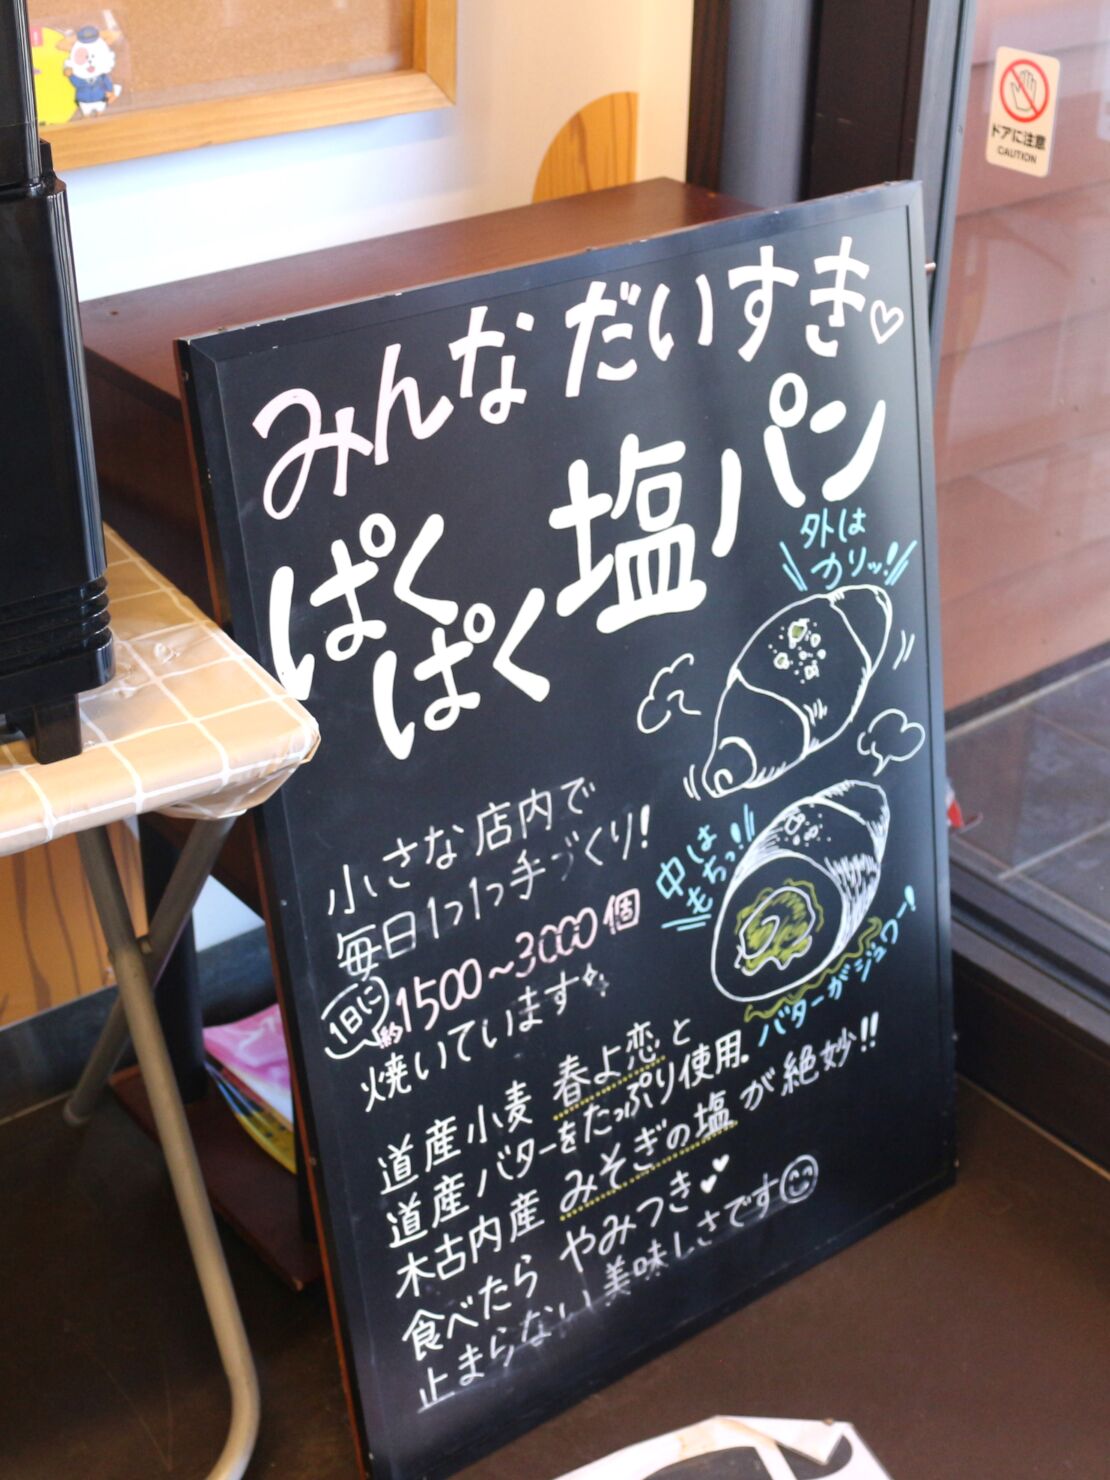 みんなだいすき♡
ぱくぱく塩パン
外は
カリッ!
中は
もちっ!!
バターがジュワー!
小さな店内で
毎日1つ1つ手づくり!
1日に約1500~3000個
焼いています
道産小麦 春よ恋と
道産バターをたっぷり使用.
木古内産 みそぎの塩が絶妙!!
食べたら やみつき♥
止まらない美味しさです
ドアに注意
CAUTION